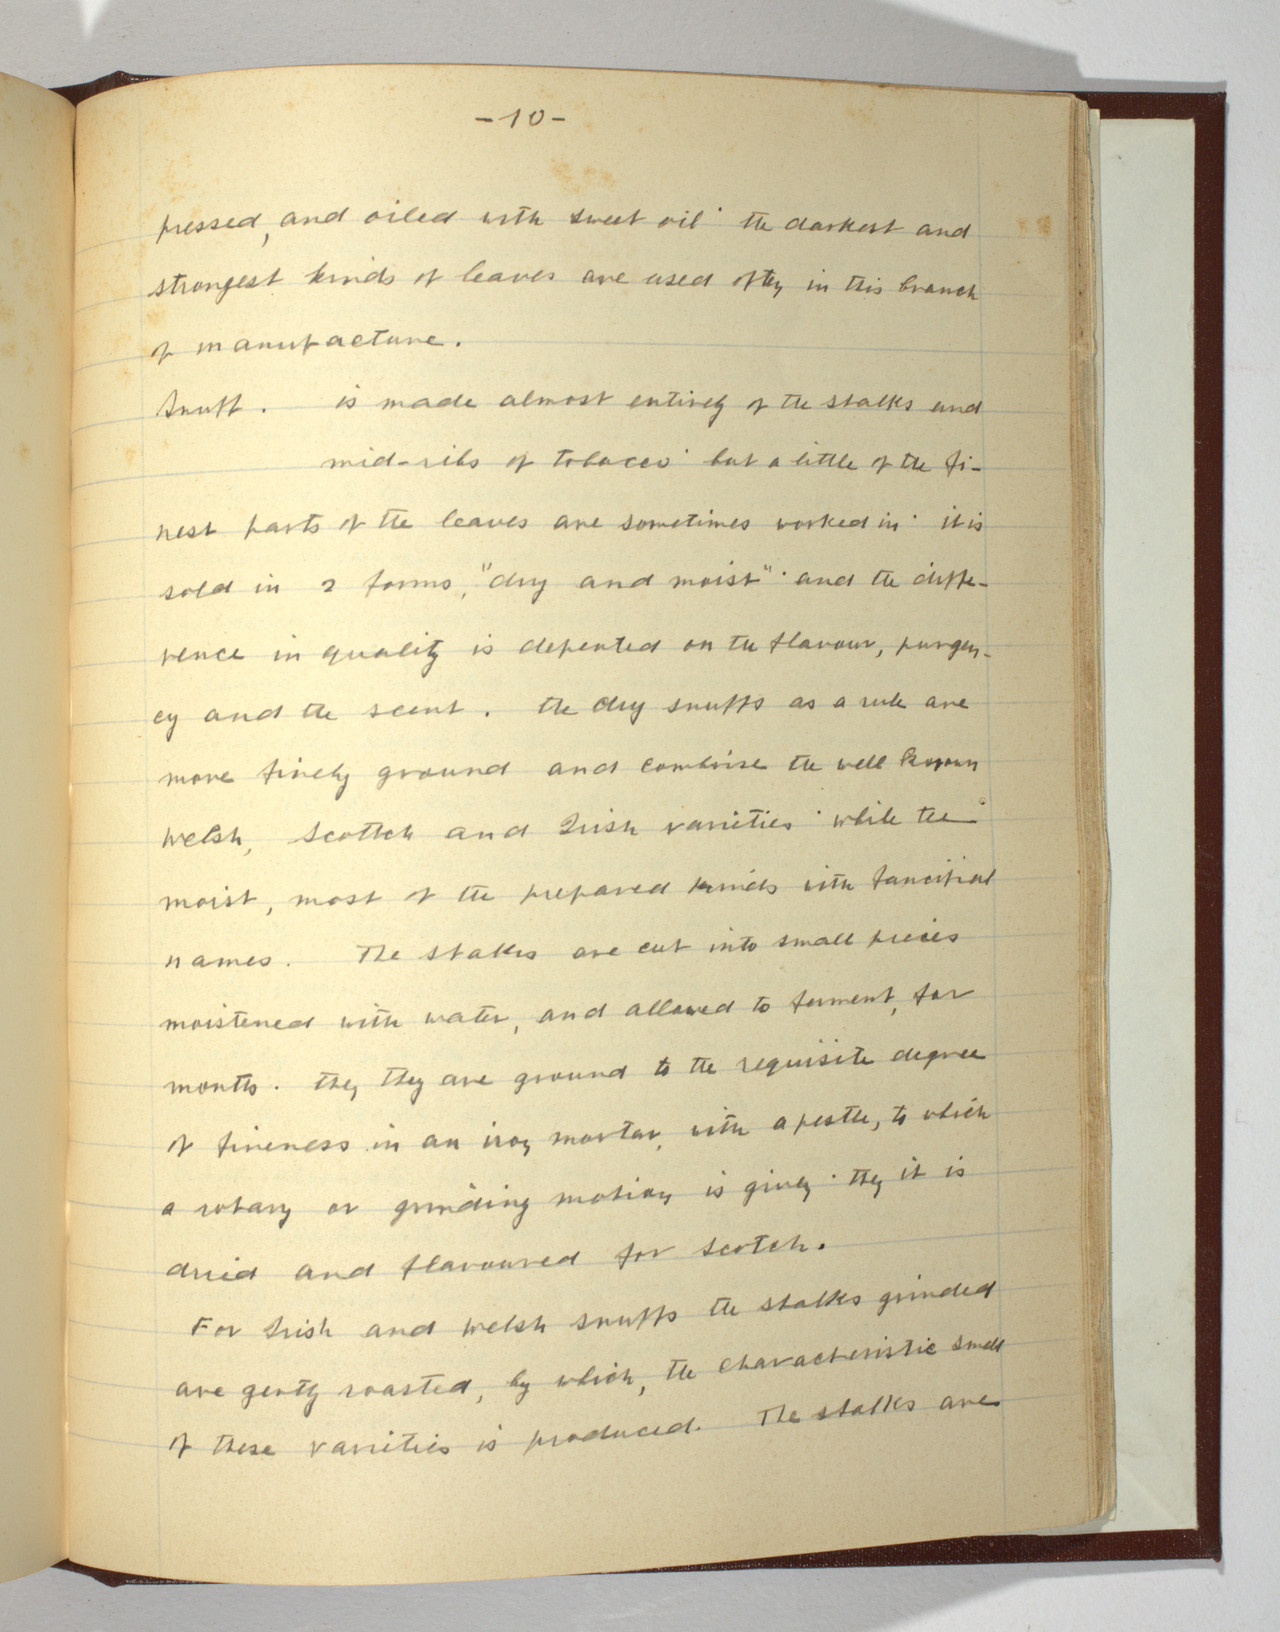 -10-
pressed, and oiled with sweet oil · the darkest and
strongest kinds of leaves are used often in this branch
of manufacture.
Snuff. is made almost entirely of the stalks and
mid-ribs of tobacco · but a little of the fi-
nest parts of the leaves are sometimes worked in · it is
sold in 2 forms, "dry and moist" · and the diffe-
rence in quality is depented on the flavour, pungen-
cy and the scent. the dry snuffs as a rule are
more finely ground and combrise the well known
Welsh, Scottch and Irish varieties · while the
moist, most of the prepared kinds with fancifful
names. The stalks are cut into small pieces
moistened with water, and allowed to ferment, for
months. then they are ground to the requisite degree
of fineness in an iron mortar, with a pestle, to which
a rotary or grinding motion is given · then it is
dried and flavoured for Scotch.
For Irish and Welsh snuffs the stalks grinded
are gently roasted, by which, the characteristic smell
of these varieties is produced. The stalks are